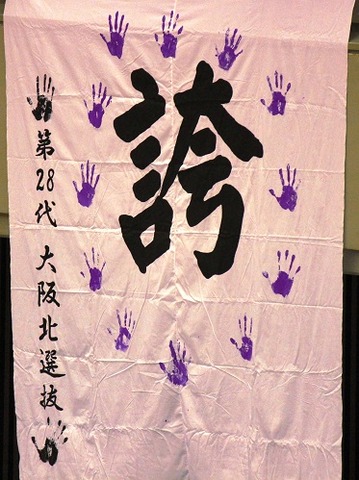 誇
第28代 大阪北選抜